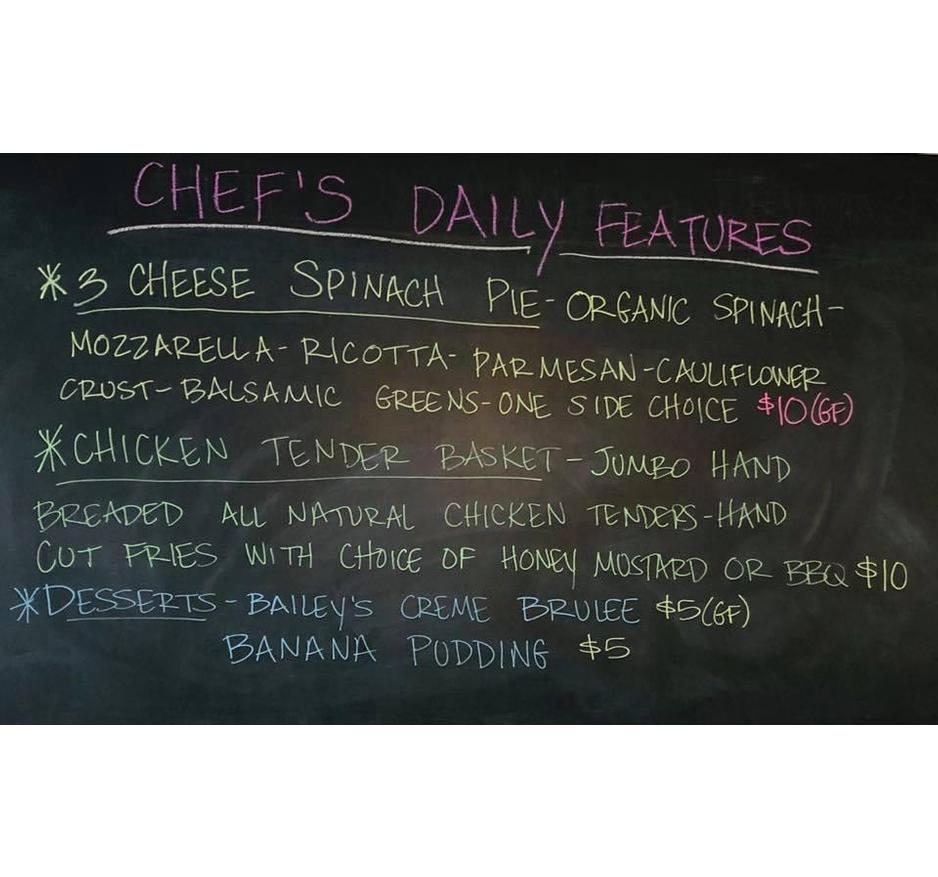 CHEF'S DAILY FEATURES
*3 CHEESE SPINACH PIE- ORGANIC SPINACH-
MOZZARELLA- RICOTTA- PARMESAN-CAULIFLOWER
CRUST- BALSAMIC GREENS-ONE SIDE CHOICE $10(GF)
*CHICKEN TENDER BASKET- JUMBO HAND
BREADED ALL NATURAL CHICKEN TENDERS-HAND
CUT FRIES WITH CHOICE OF HONEY MUSTARD OR BBQ $10
*DESSERTS- BAILEY'S CREME BRULEE $5(GF)
BANANA PUDDING $5